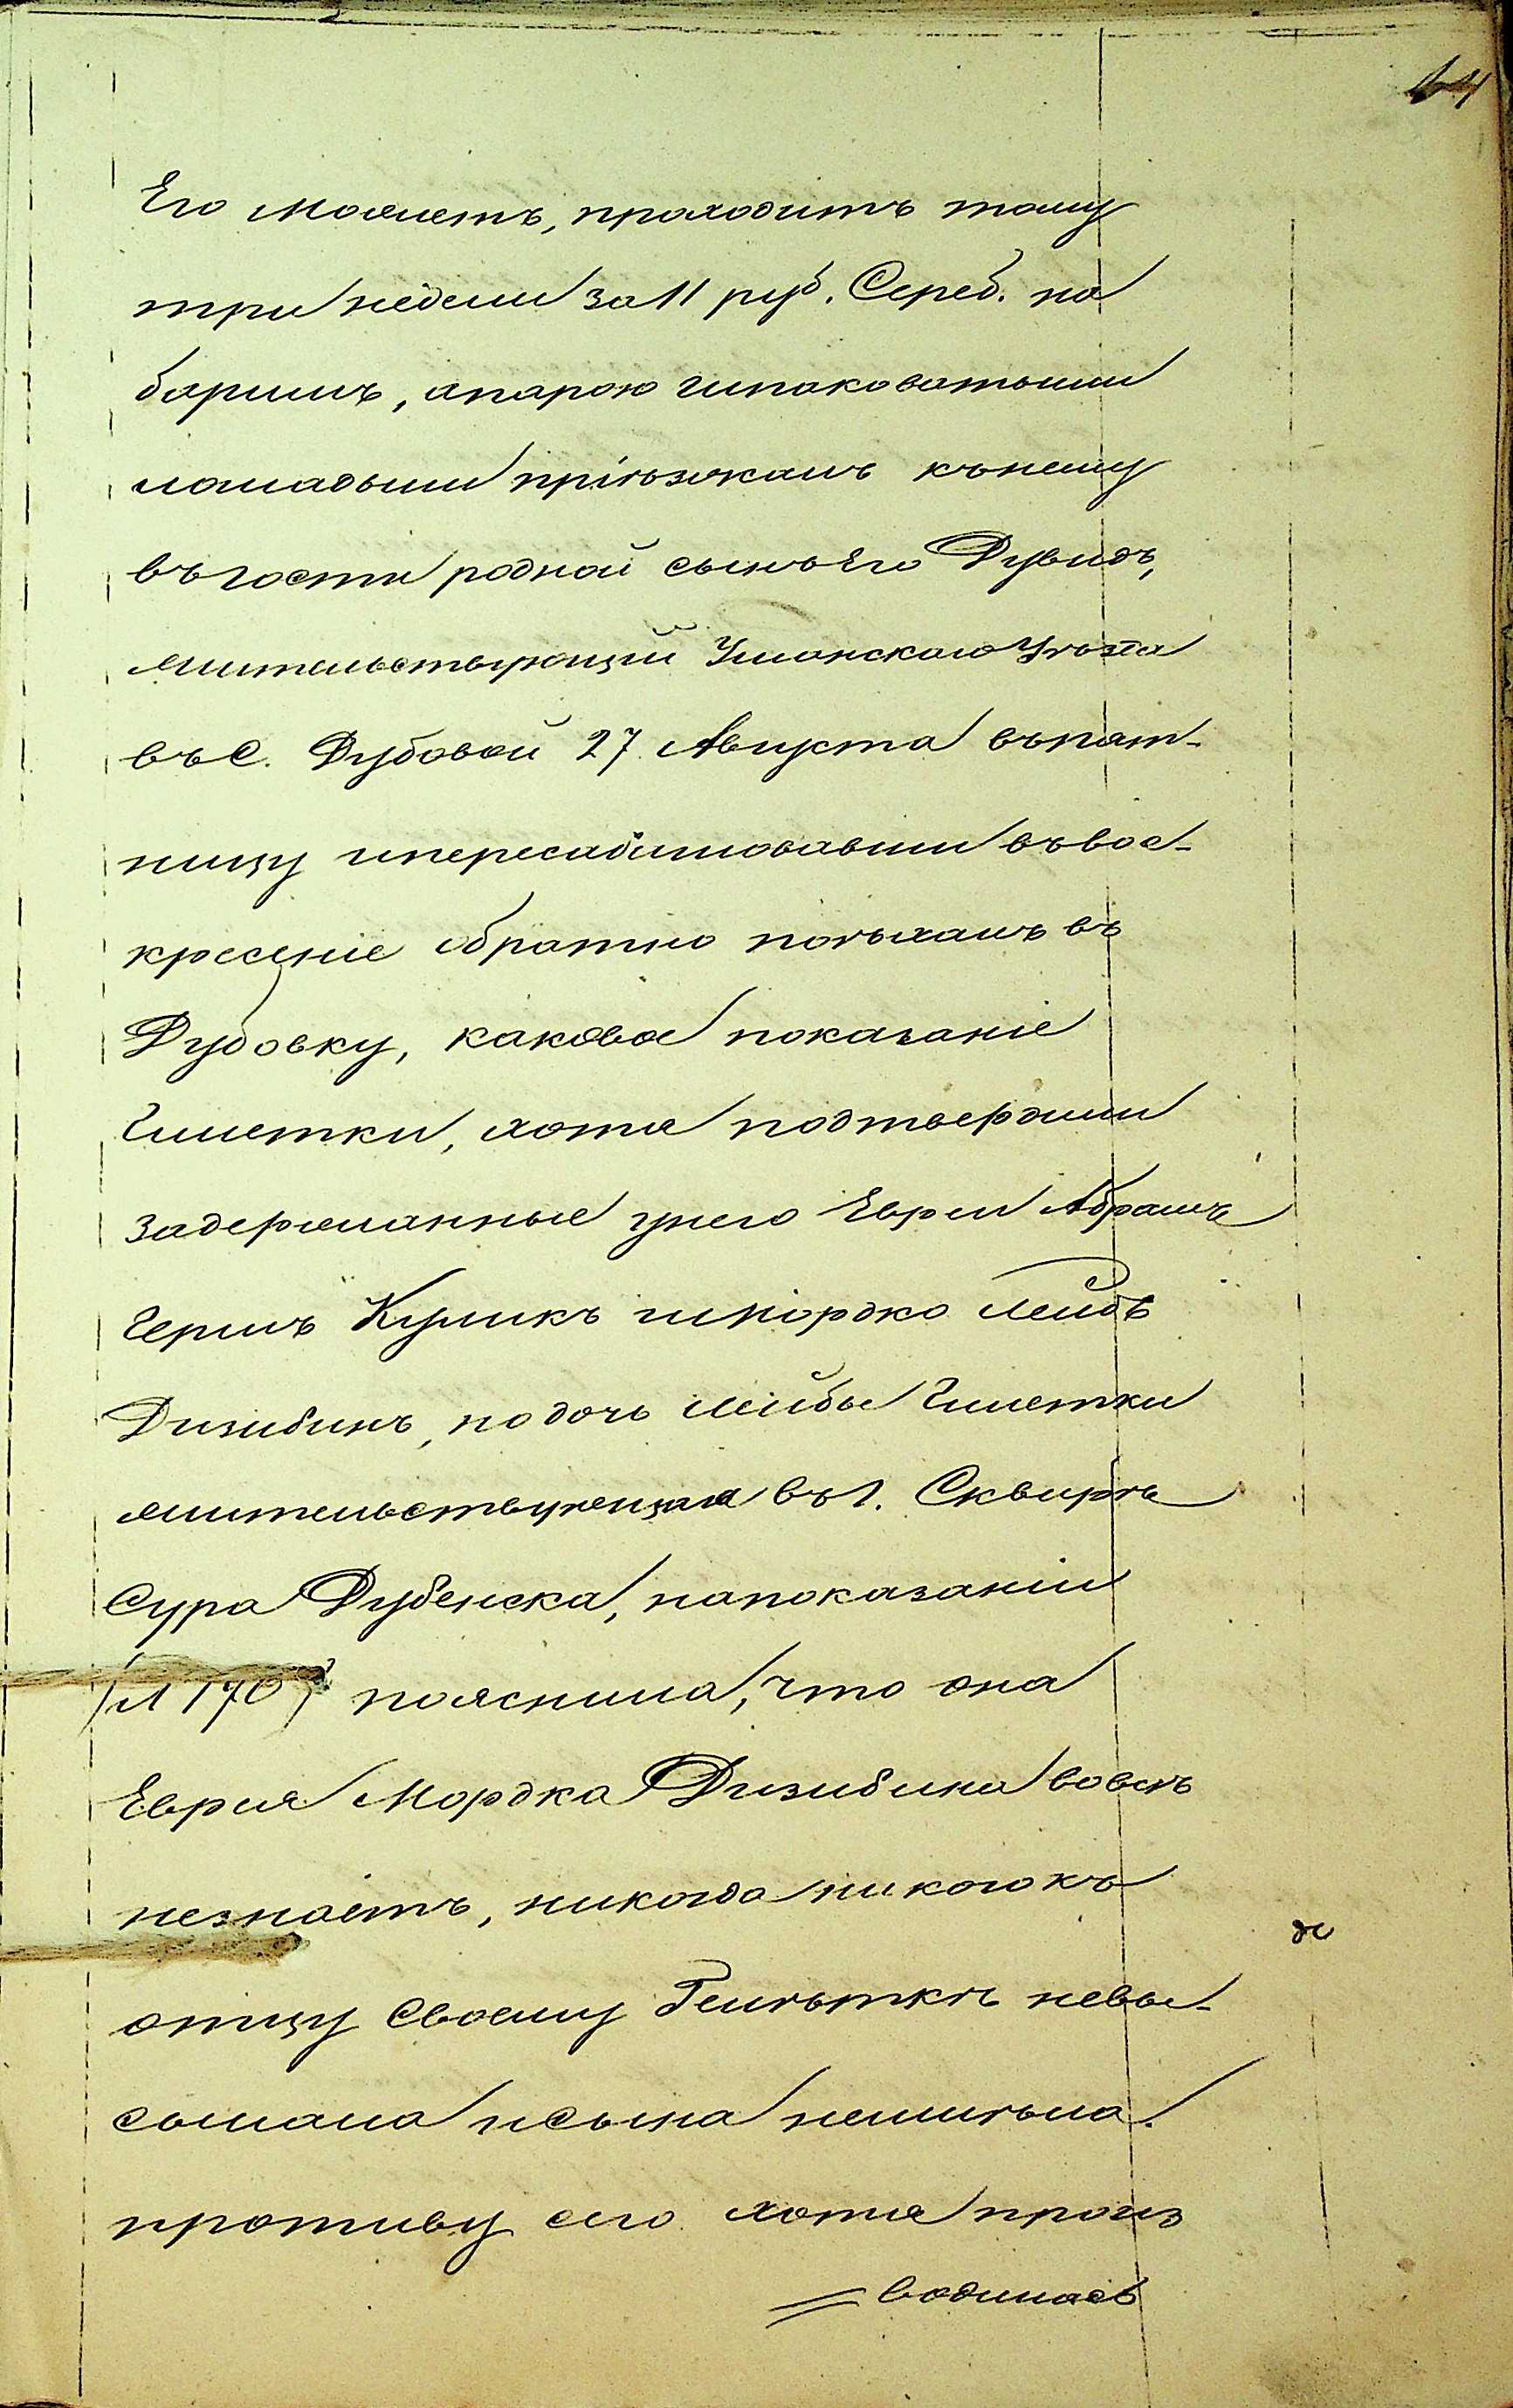 44
Его можетъ, проходитъ тому
три недели за 11 руб. Сереб. на
барышъ, апарою шпаковатыми
лошадьми пріѣзжалъ къ нему
въ гости родной сынъ Его Дувидъ,
жительствующій Уманскаго Уѣзда
въ С. Дубовой 27 Августа въ пят-
ницу и пересабашовавши въ вос-
кресеніе обратно поѣхалъ въ
Дубовку, каковое показаніе
Гилетки, хотя подтвердили
задержанные у него Евреи Абрамъ
Гершъ Куликъ и Мордко Лейбъ
Дизибинъ, но дочь Лейбы Гилетки
жительствующая въ г. Сквирѣ
Сура Дубенска, на показаніи
(л 170) пояснила, что она
Еврея Мордка Дизибина вовсе
незнаетъ, никогда никого къ
отцу Своему Гилѣткѣ невы-
сылала и Сына неимѣла.
противу сего хотя произ
= водилась